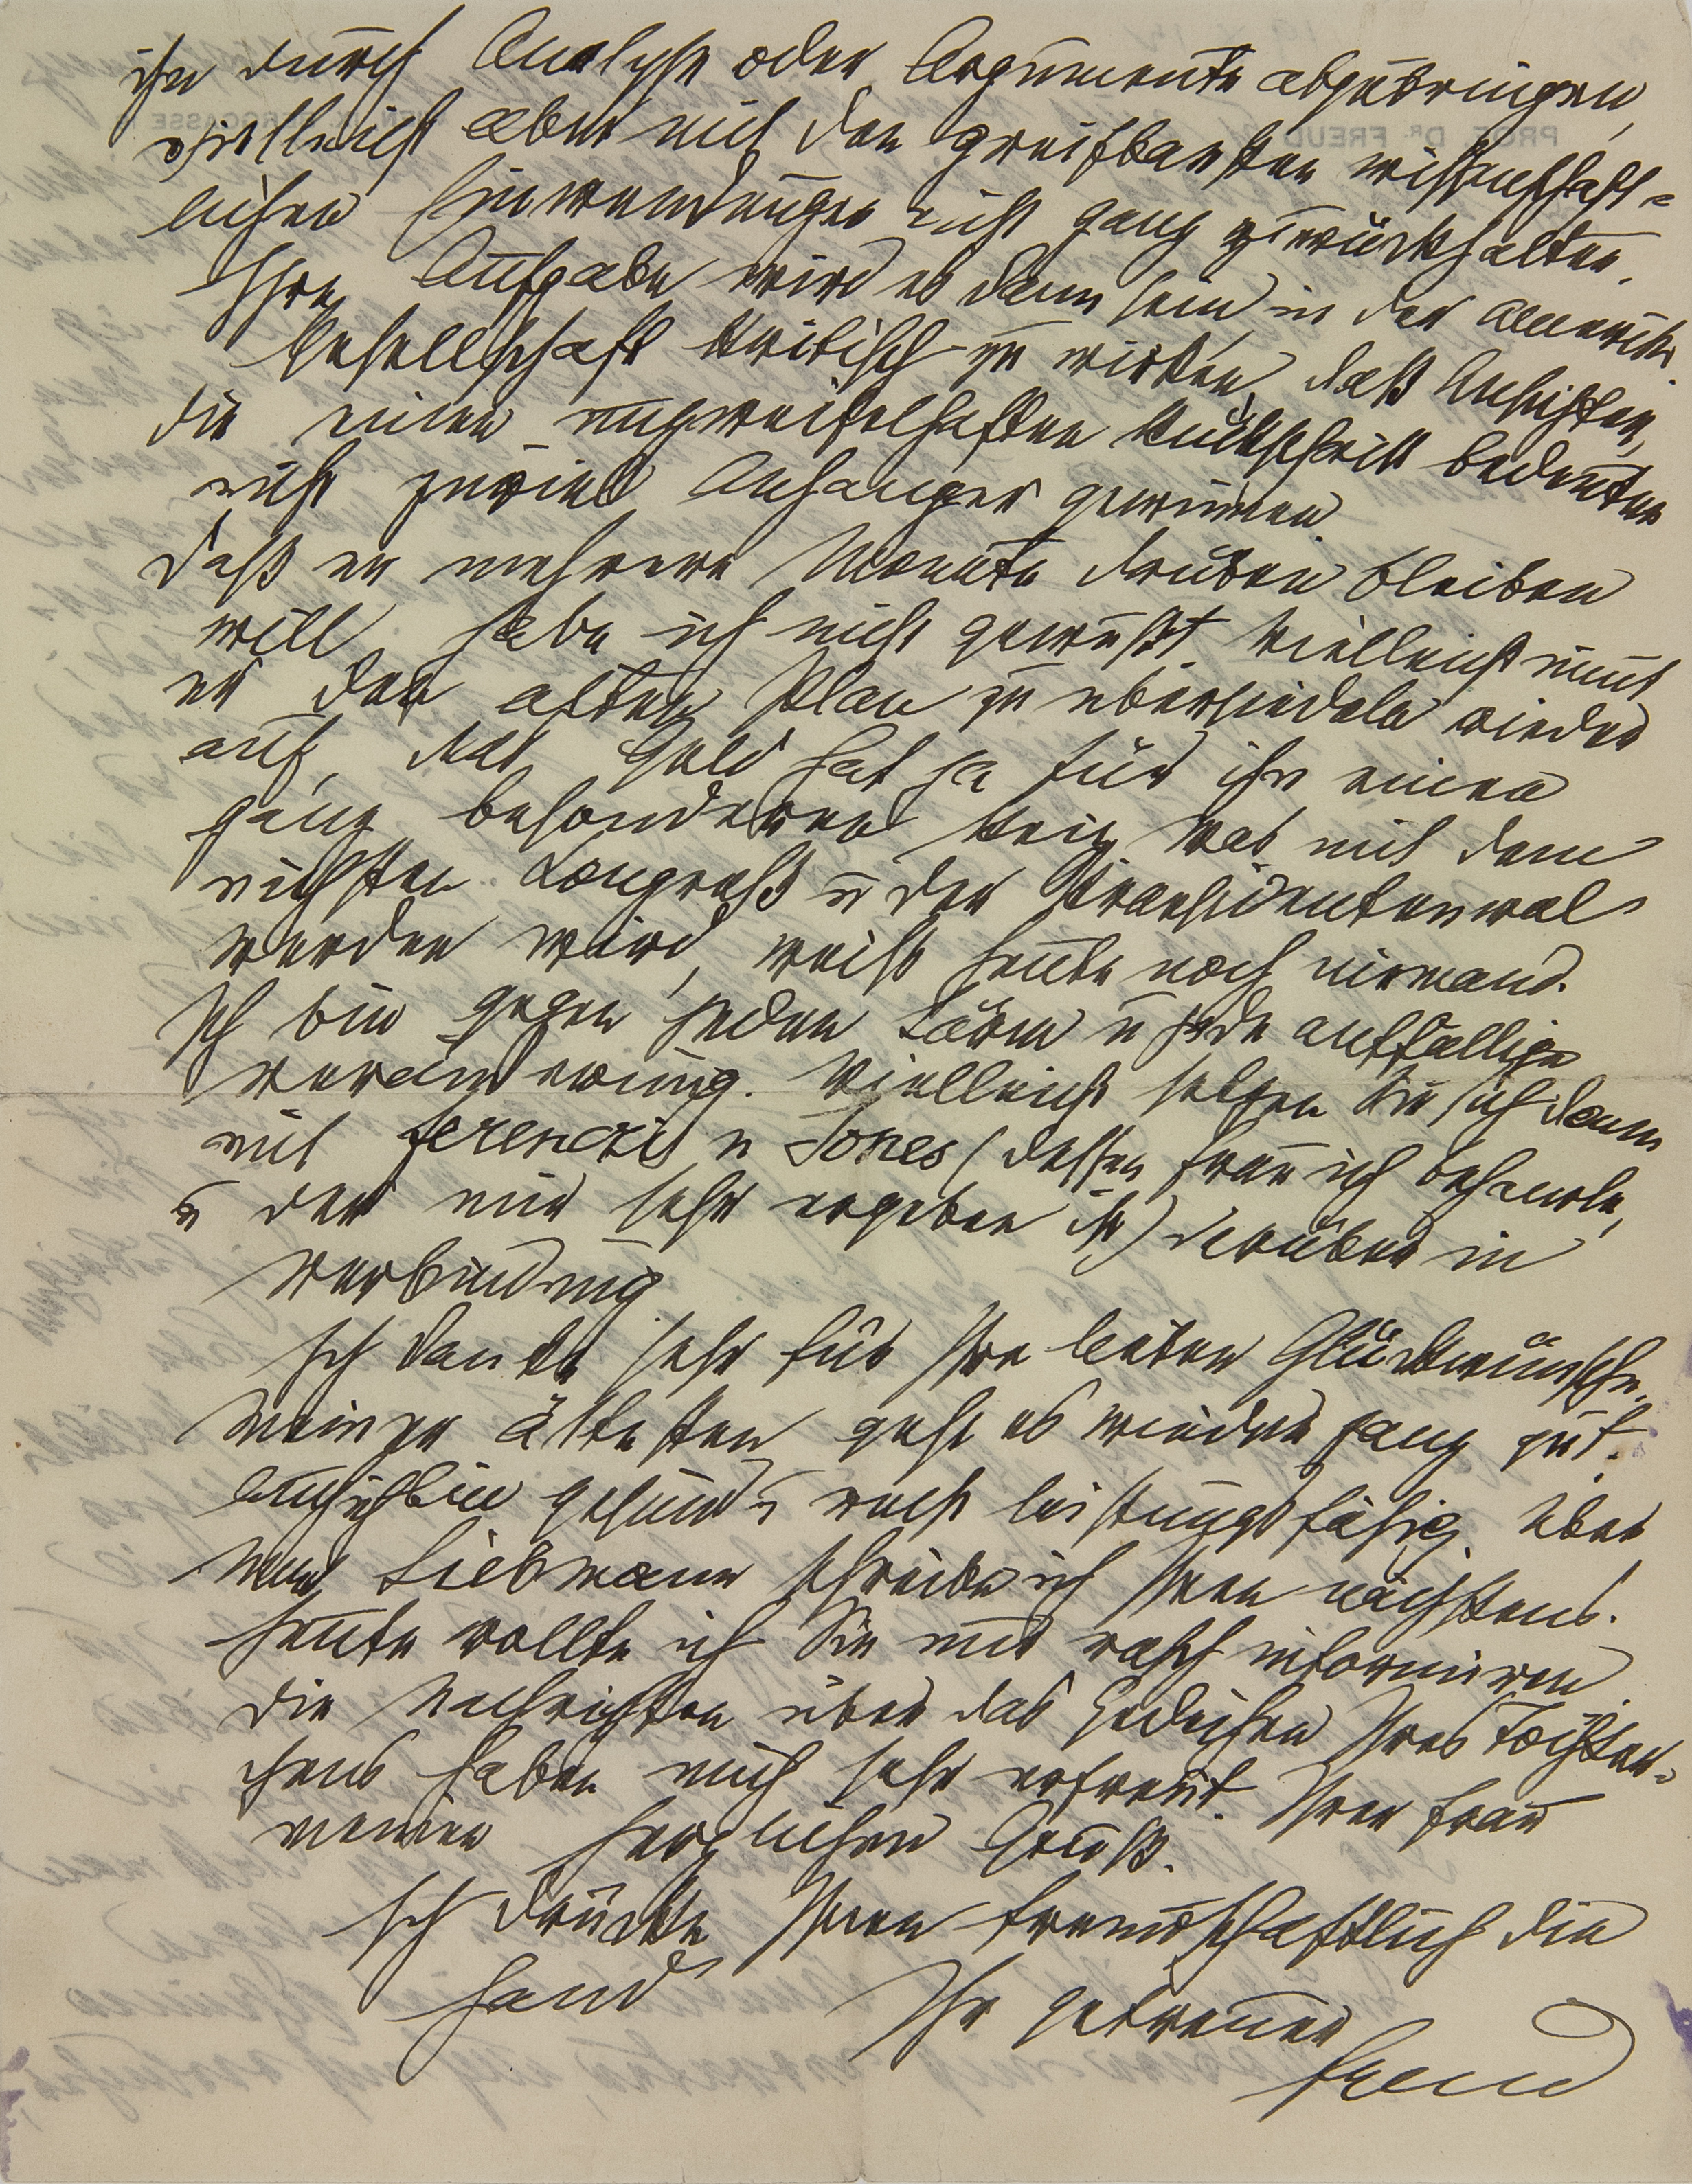 ihn durch Analyse oder Argumente abzubringen,
vielleicht aber mit den greifbarsten wissenschaft-
lichen Einwendungen nicht ganz zurückhalten.
Ihre Aufgabe wird es dann sein in der amerik.
Gesellschaft kritisch zu wirken, daß Ansichten,
die einen unzweifelhaften Rückschritt bedeuten
nicht zuviel Anhänger gewinnen
Daß er mehrere Monate drüben bleiben
will, habe ich nicht gewußt. Vielleicht nimt
er den alten Plan zu übersiedeln wieder
auf, das Geld hat ja für ihn einen
ganz besonderen Reiz. Was mit dem
nächsten Kongreß u der Präsidentenwal
werden wird, weiß heute noch niemand.
Ich bin gegen jeden Lärm u jede auffällige
Veränderung. Vielleicht setzen Sie sich dann
mit Ferenczi u Jones (dessen Frau ich behandle,
u der mir sehr ergeben ist) darüber in
Verbindung
Ich danke sehr für Ihre lieben Glückwünsche.
Meinem ältesten geht es wieder ganz gut.
Auch ich bin gesund u recht leistungsfähig. Über
Liebmann schreibe ich Ihnen nächstens.
Heute wollte ich Sie nur rasch informieren
Die Nachrichten über das Gedeihen Ihres Töchter-
chens haben mich sehr erfreut. Ihrer Frau
meinen herzlichen Gruß.
Ich drücke Ihnen freundschaftlich die
Hand
Ihr getreuer
Freud
PROF. DR. FREUD